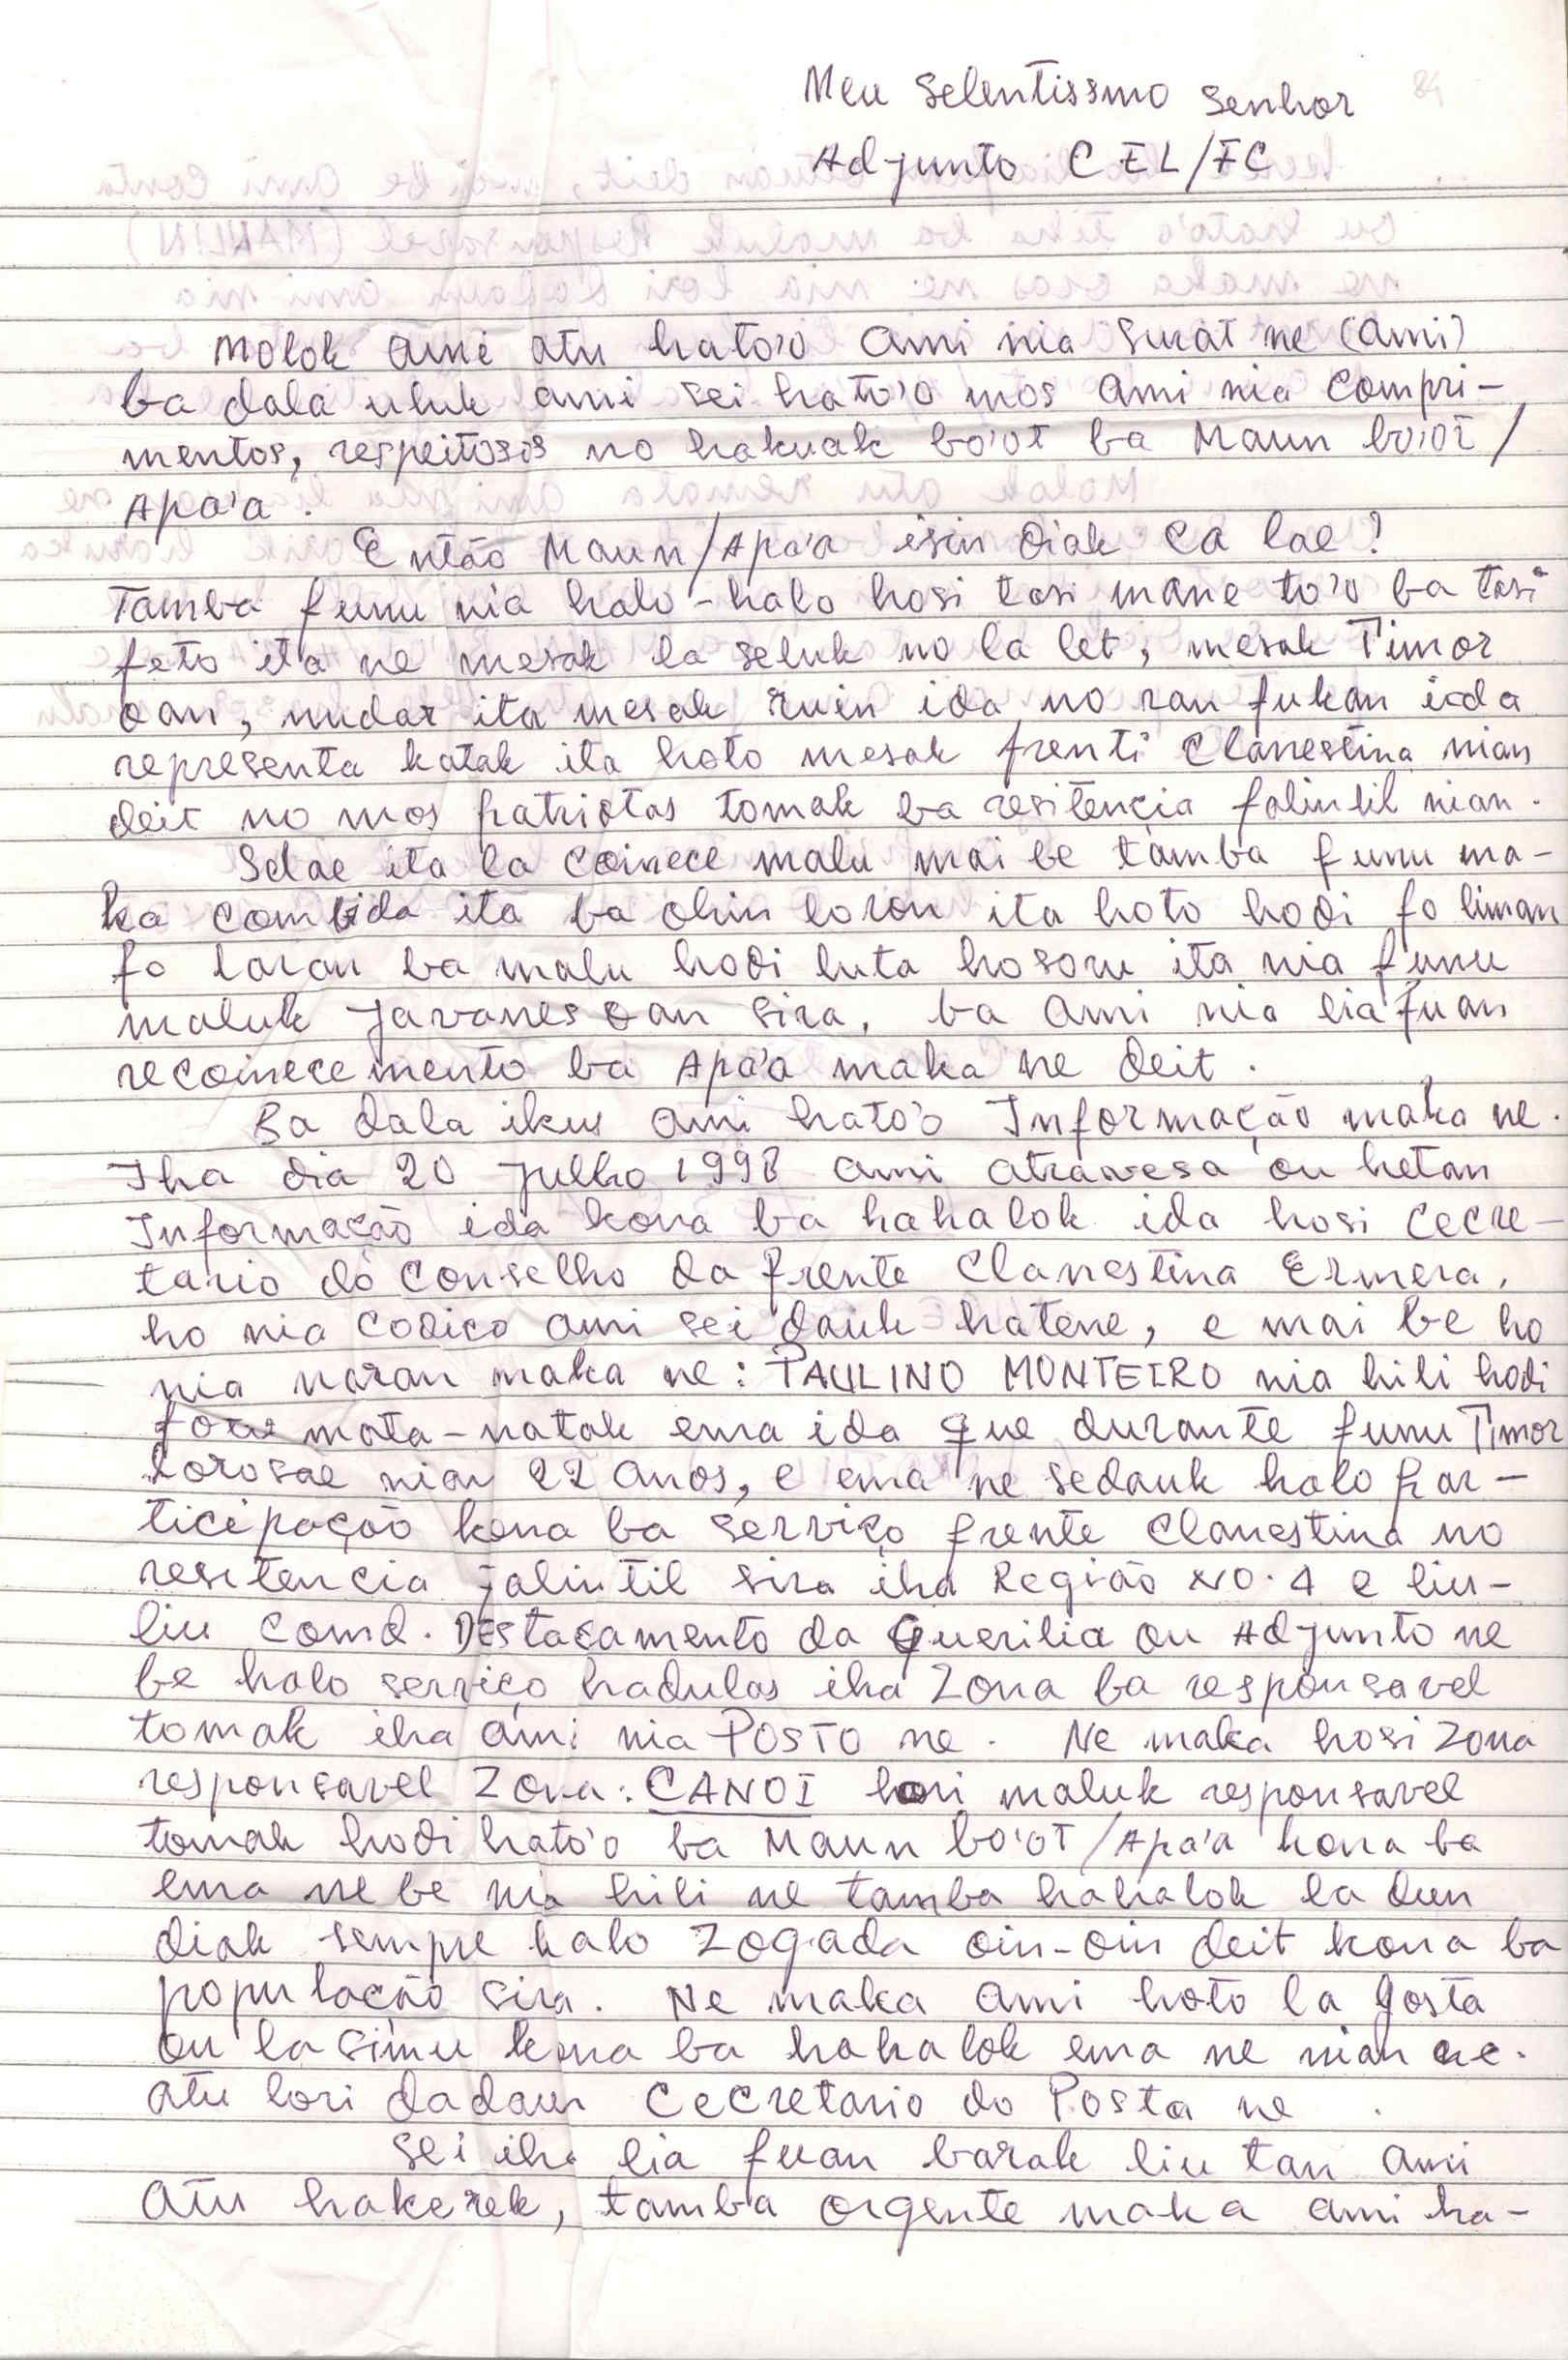 Meu Selentissmo Senhor
Adjunto CEL/FC
Molok ami atu hato'o ami nia surat ne (ami)
ba dala uluk ami sei hato'o mos ami nia compri-
mentos, respeitosos no hakuak bo'ot ba Maun bo'ot/
Apa'a.
Então Maun/Apa'a isin diak ca lae?
Tamba funu nia halo-halo hosi tasi mane to'o ba tasi
feto ita ne mesak la seluk no la let, mesak Timor
oan, nudar ita mesak ruin ida no ran fukan ida
representa katak ita hoto mesak frenti Clanestina nian
deit no mos patriotas tomak ba resitencia falintil nian.
Selae ita la coinece malu mai be tamba funu ma-
ka combida ita ba ohin loron ita hoto hodi fo liman
fo laran ba malu hodi luta hosoru ita nia funu
maluk Javanes oan sira, ba ami nia lia fuan
recoinecemento ba Apa'a maka ne deit.
Ba dala ikus ami hato'o Informação maka ne.
Iha dia 20 Julho 1998 ami atravesa ou hetan
Informação ida kona ba hahalok ida hosi Cecre-
tario do Conselho da frente Clanestina Ermera,
ho nia codico ami sei dauk hatene, e mai be ho
nia naran maka ne: PAULINO MONTEIRO nia hili hodi
mata-natak ema ida que durante funu Timor
Lorosae nian 22 anos, e ema ne sedauk halo par-
ticipação kona ba serviço frente Clanestina no
resitencia falintil sira iha Região No. 4 e liu-
liu Comd. Destacamento da Guerilia ou Adjunto ne
be halo serviço hadulas iha Zona ba responsavel
tomak iha ami nia POSTO ne. Ne maka hosi Zona
responsavel Zona: CANOI hori maluk responsavel
tomak hodi hato'o ba Maun bo'ot/Apa'a kona ba
ema ne be nia hili ne tamba hahalok la dun
diak sempre halo Zogada oin-oin deit kona ba
população sira. Ne maka ami hoto la gosta
ou la simu kona ba hahalok ema ne nian ne.
atu lori dadaun Cecretario do Posta ne.
Sei iha lia fuan barak liu tan ami
atu hakerek, tamba orgente maka ami ha-